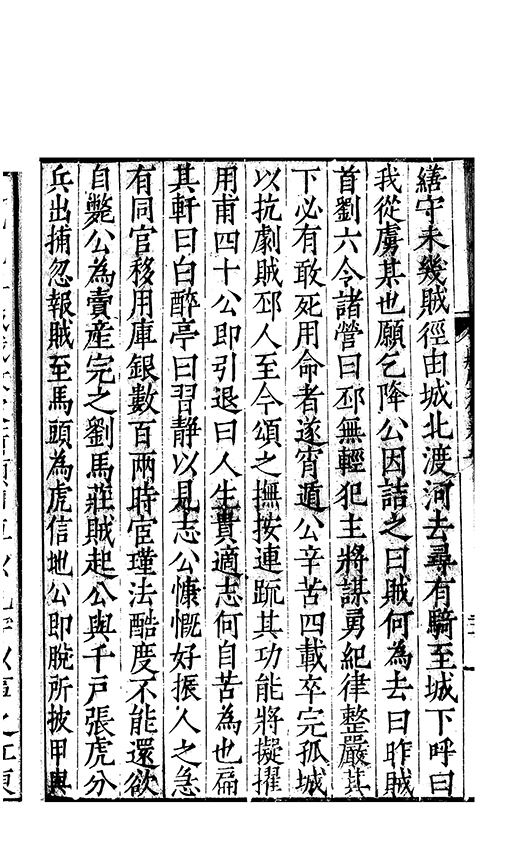 繕守未幾賊徑由城北渡河去尋有騎至城下呼曰
我從虜某也願乞降公因詰之曰賊何為去曰昨賊
首劉六令諸營曰邳無輕犯主將謀勇紀律整嚴其
下必有敢死用命者遂宵遁公辛苦四載卒完孤城
以抗劇賊邳人至今頌之撫按連䟽其功能將擬擢
用甫四十公即引退曰人生貴適志何自苦為也扁
其軒曰白醉亭曰習静以見志公慷慨好振人之急
有同官移用庫銀數百兩時宦瑾法酷度不能還欲
自斃公為賣産完之劉馬莊賊起公與千戶張虎分
兵出捕忽報賊至馬頭為虎信地公即脫所披甲與